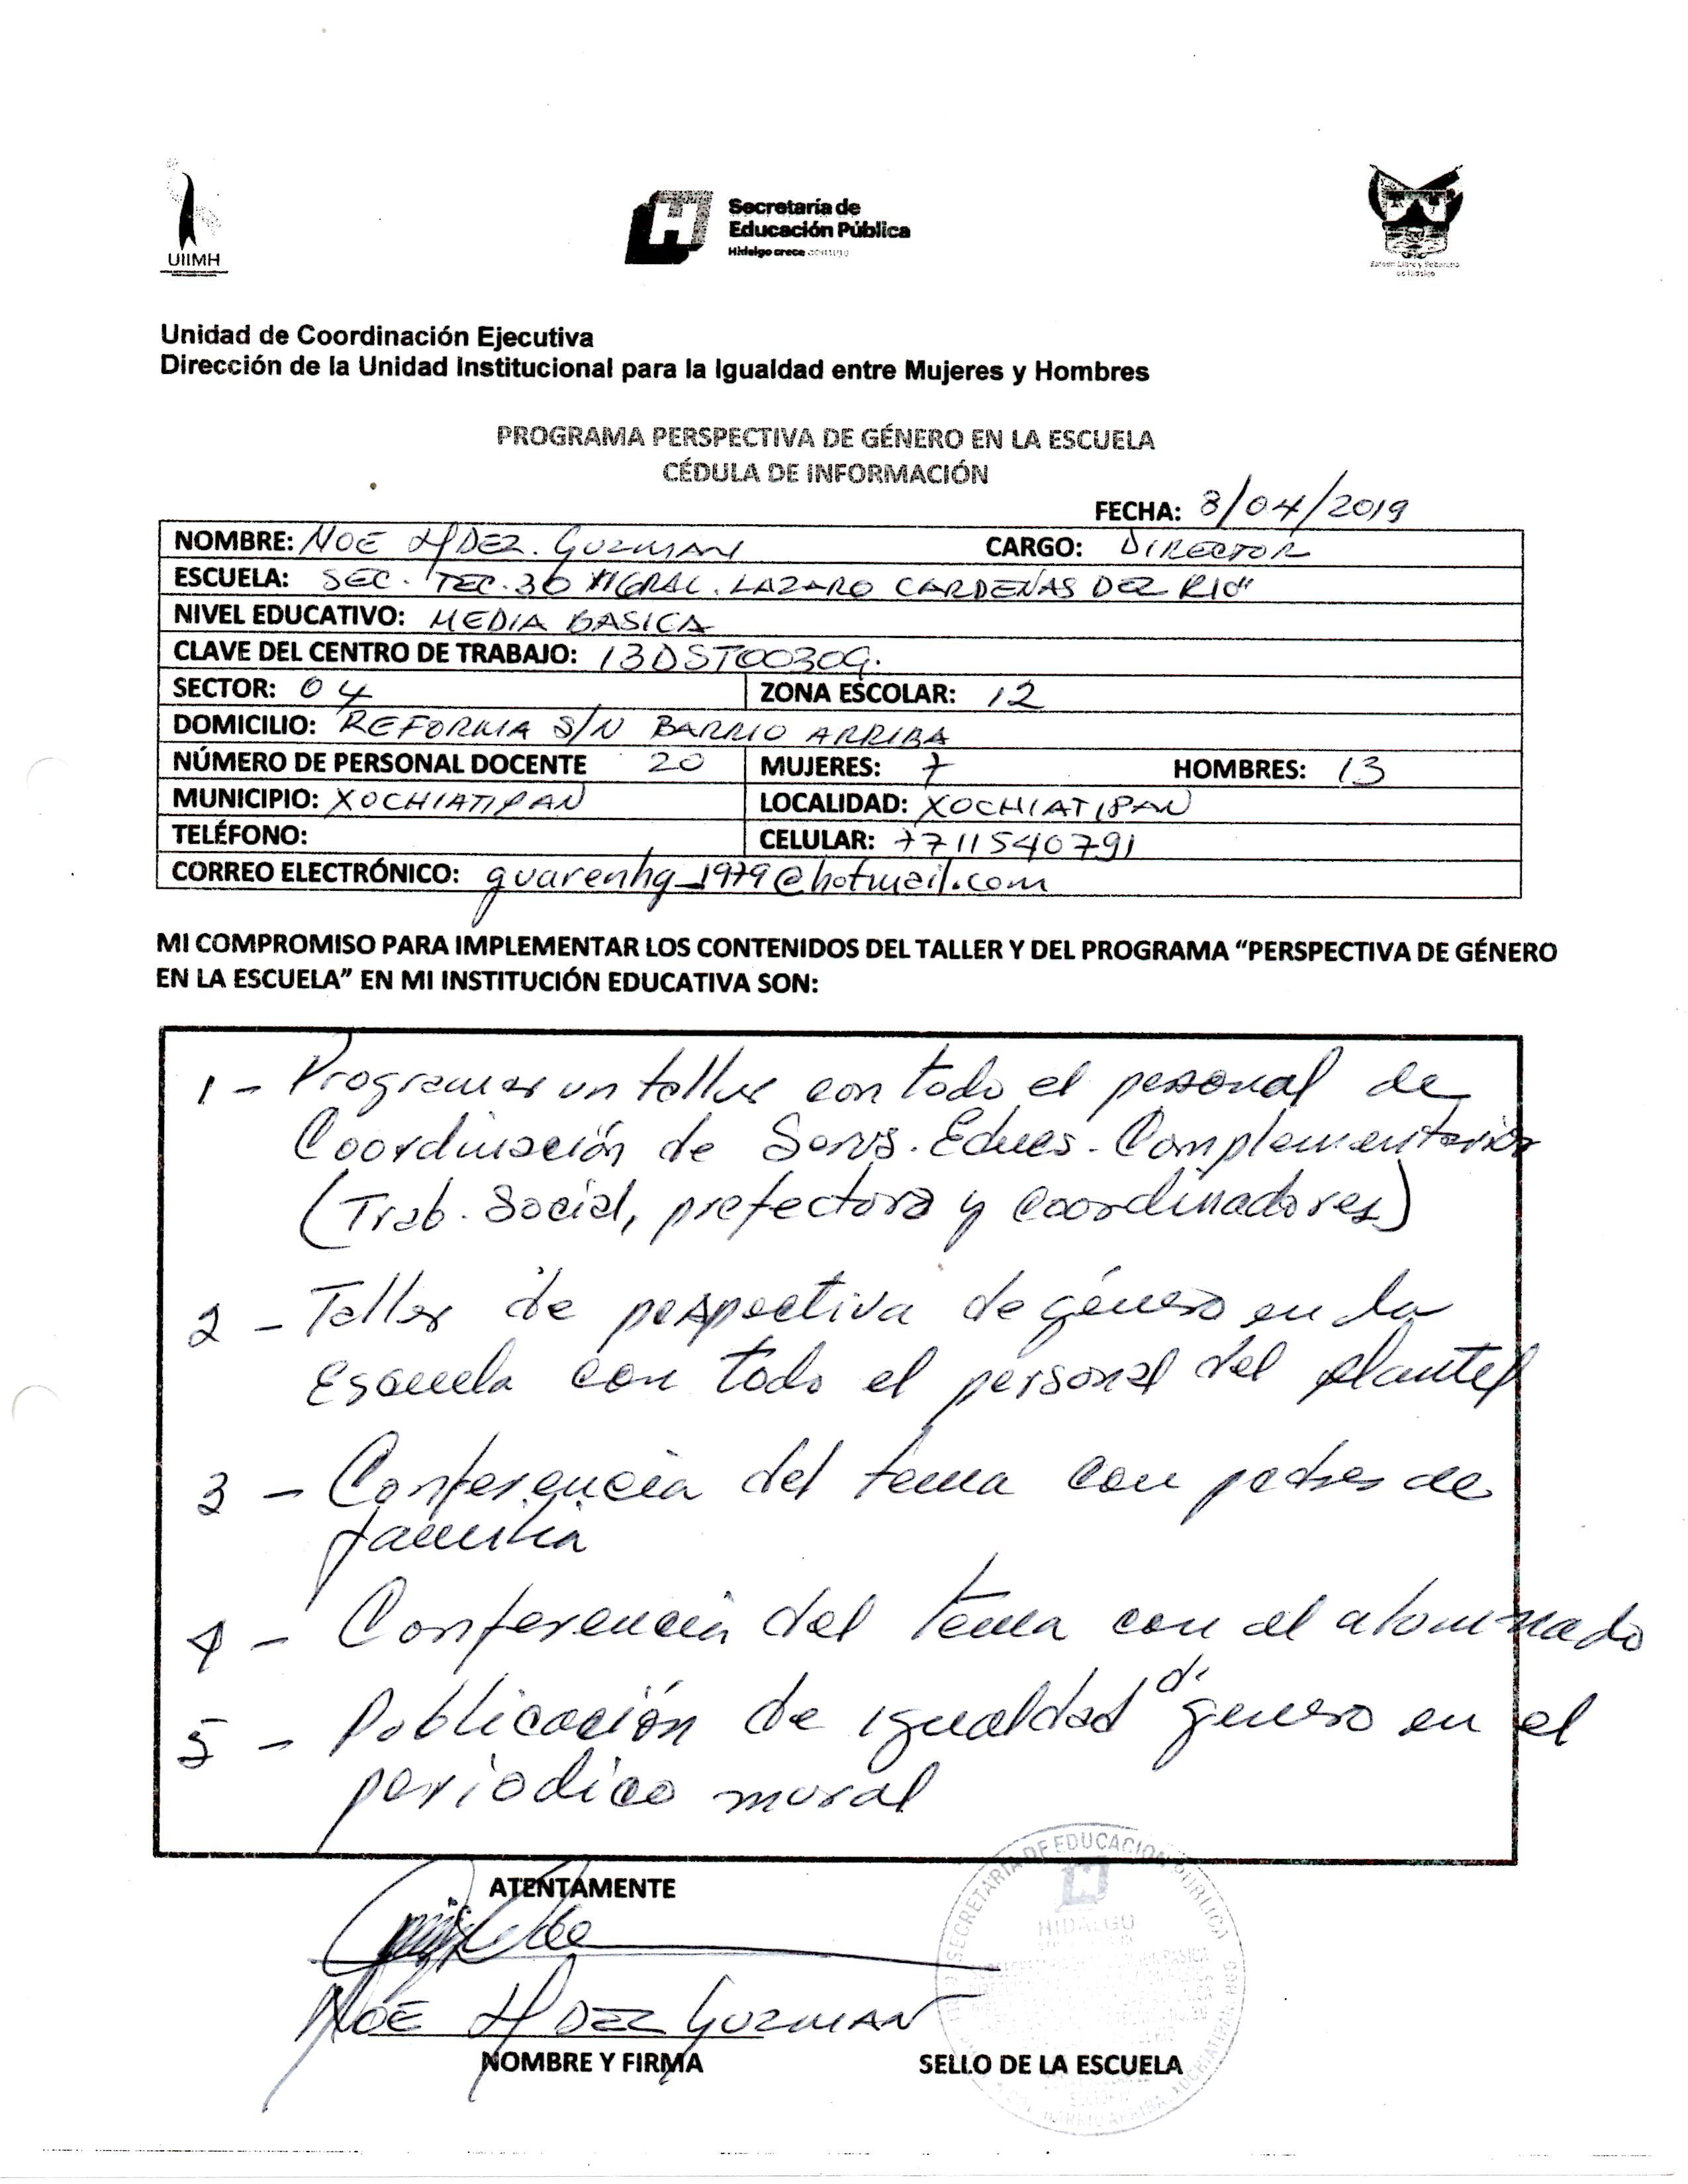 UIIMH
Secretaría de
Educación Pública
Hidalgo crece contigo
Estado Libre y Soberano
de Hidalgo
Unidad de Coordinación Ejecutiva
Dirección de la Unidad Institucional para la Igualdad entre Mujeres y Hombres
PROGRAMA PERSPECTIVA DE GÉNERO EN LA ESCUELA
CÉDULA DE INFORMACIÓN
FECHA: 8/04/2019
NOMBRE: NOE HDEZ. GUZMAN CARGO: DIRECTOR
ESCUELA: SEC. TEC. 30 "GRAL. LAZARO CARDENAS DEL RIO"
NIVEL EDUCATIVO: MEDIA BASICA
CLAVE DEL CENTRO DE TRABAJO: 13DST0030G.
SECTOR: 04 ZONA ESCOLAR: 12
DOMICILIO: REFORMA S/N BARRIO ARRIBA
NÚMERO DE PERSONAL DOCENTE 20 MUJERES: 7 HOMBRES: 13
MUNICIPIO: XOCHIATIPAN LOCALIDAD: XOCHIATIPAN
TELÉFONO: CELULAR: 7711540791
CORREO ELECTRÓNICO: guarenhg_1979@hotmail.com
MI COMPROMISO PARA IMPLEMENTAR LOS CONTENIDOS DEL TALLER Y DEL PROGRAMA “PERSPECTIVA DE GÉNERO
EN LA ESCUELA” EN MI INSTITUCIÓN EDUCATIVA SON:
1 - Programar un taller con todo el personal de
Coordinación de Servs. Educs. Complementarios
(Trab. Social, prefectora y coordinadores)
2 - Taller de perspectiva de género en la
Escuela con todo el personal del plantel
3 - Conferencia del tema con padres de
familia
4 - Conferencia del tema con el alumnado
5 - Publicación de igualdad d. genero en el
periodico mural
ATENTAMENTE
NOE HDEZ GUZMAN
NOMBRE Y FIRMA SELLO DE LA ESCUELA
SECRETARIA DE EDUCACION PUBLICA
HIDALGO
BARRIO ARRIBA, XOCHIATIPAN, HGO.